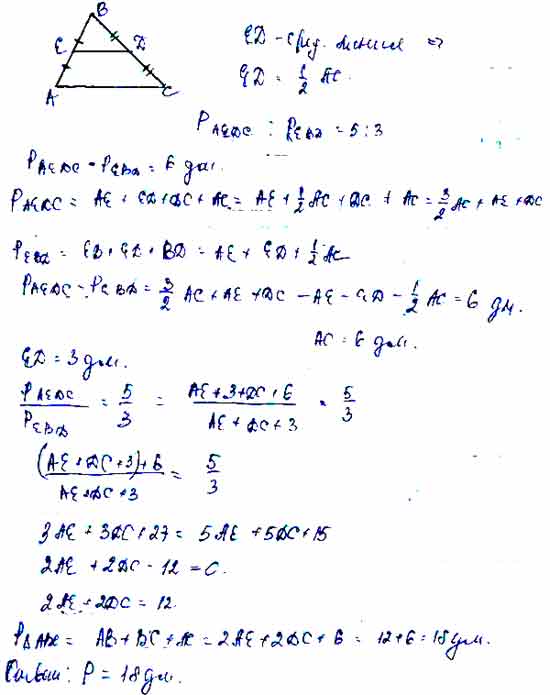 B
E D
A C
ED - сред. линия =>
ED = 1/2 AC.
P AEDC : P EBD = 5 : 3
P AEDC - P EBD = 6 дм.
P AEDC = AE + ED + DC + AC = AE + 1/2 AC + DC + AC = 3/2 AC + AE + DC
P EBD = EB + ED + BD = AE + ED + 1/2 AC
P AEDC - P EBD = 3/2 AC + AE + DC - AE - ED - 1/2 AC = 6 дм.
AC = 6 дм.
ED = 3 дм.
P AEDC / P EBD = 5/3 = (AE + 3 + DC + 6) / (AE + DC + 3) = 5/3
((AE + DC + 3) + 6) / (AE + DC + 3) = 5/3
3AE + 3DC + 27 = 5AE + 5DC + 15
2AE + 2DC - 12 = 0.
2AE + 2DC = 12.
P ΔABC = AB + BC + AC = 2AE + 2DC + 6 = 12 + 6 = 18 дм.
Ответ: P = 18 дм.